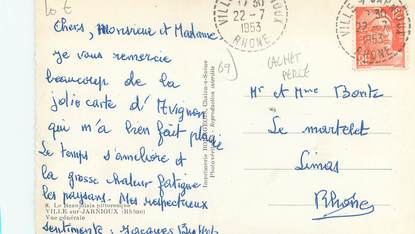 10 €
Chers, Monsieur et Madame.
je vous remercie
beaucoup de la
jolie carte d'Avignon
qui m'a bien fait plaisir
Le temps s'améliore et
la grosse chaleur fatigue
les paysans. Mes respectueux
sentiments : Jacques
8. Le Beaujolais pittoresque
VILLE-sur-JARNIOUX (Rhône)
Vue générale
Photo-reportage - Reproduction interdite
69)
VILLE-SUR-JARNIOUX
17 30
22 - 7
1953
RHONE
CACHET
PERLÉ
30
22 - 7
1953
RHONE
Mr et Mme Bonte
Le martelet
Limas
Rhône